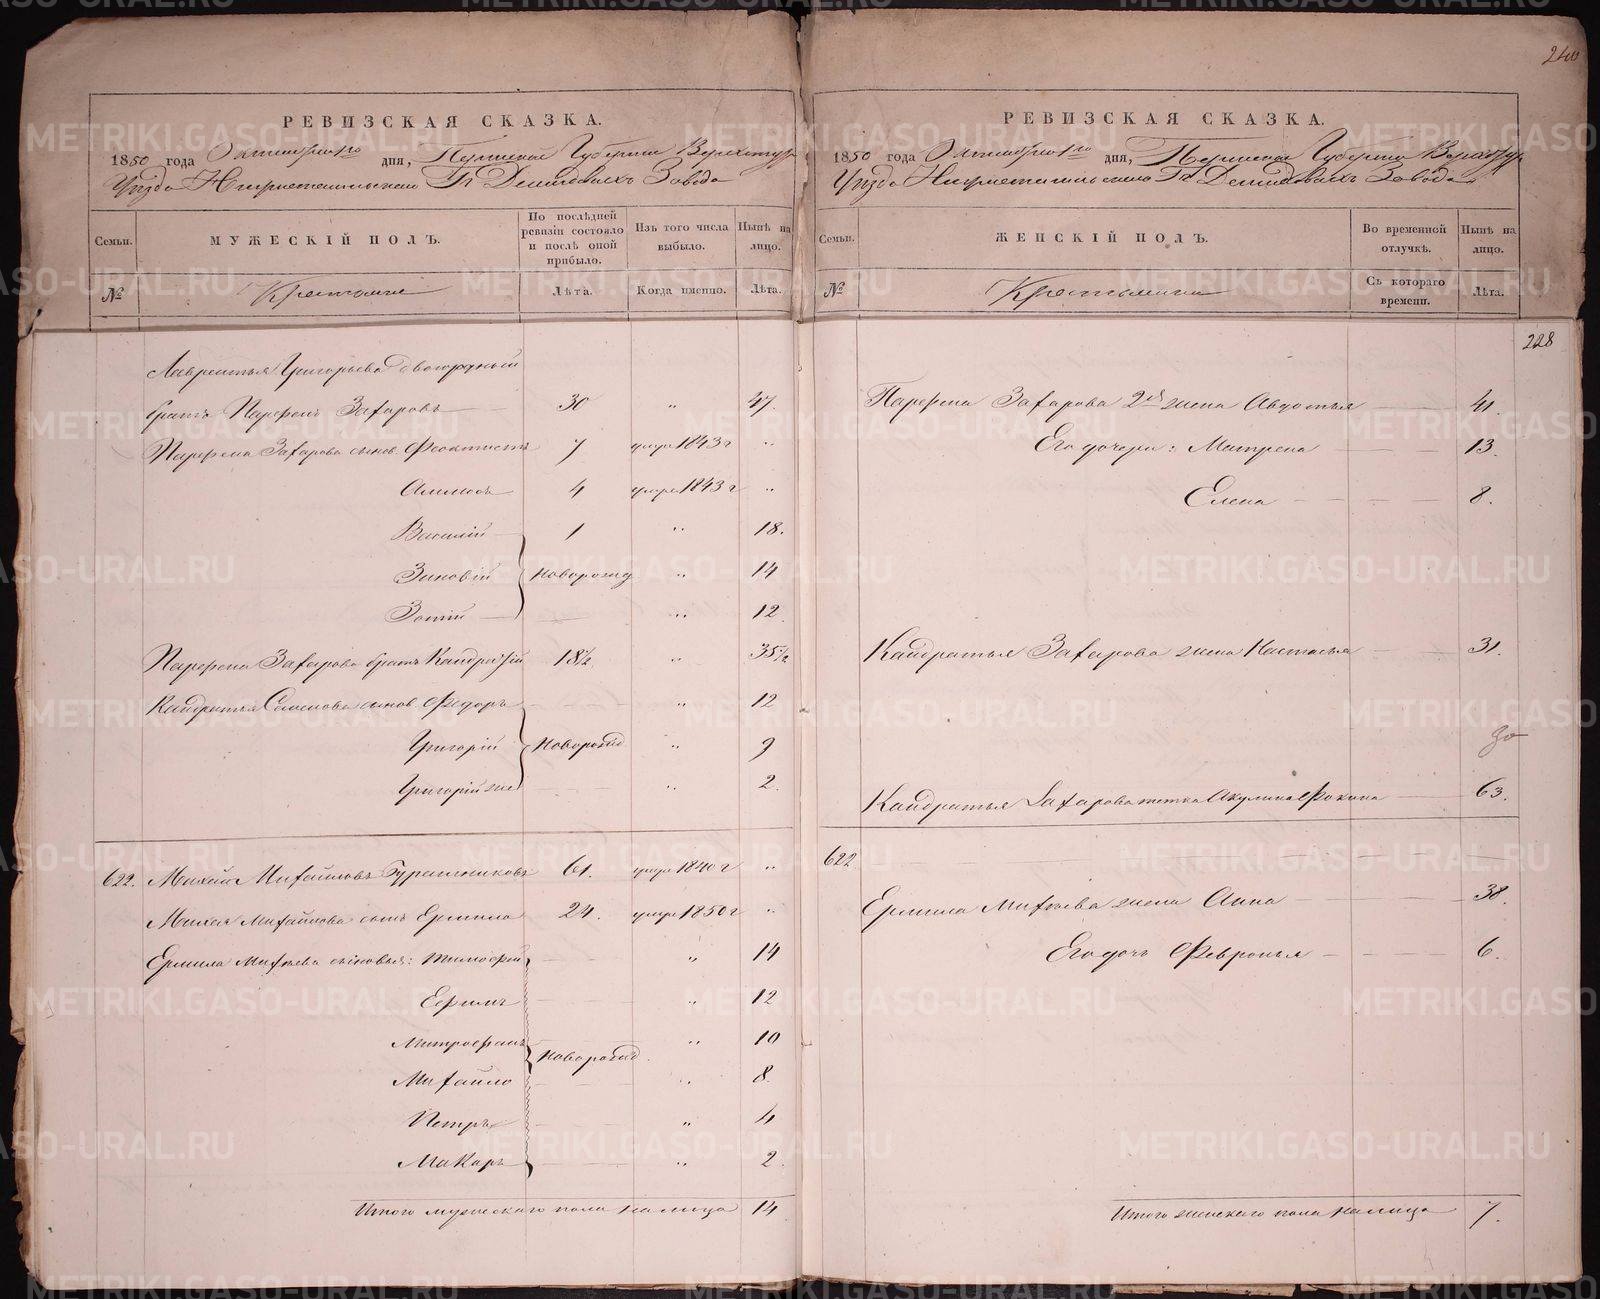 240
РЕВИЗСКАЯ СКАЗКА.
1850 года Октября го дня, Пермской Губернии Верхотур
Уезда Нижнетагильскаго Гг Демидовыхъ Завода
Семьи.
МУЖЕСКІЙ ПОЛЪ.
По послѣдней ревизіи состояло и послѣ оной прибыло.
Изъ того числа выбыло.
Нынѣ на лицо.
№
Крестьяне
Лѣта.
Когда именно.
Лѣта.
Лаврентья Григорьева двоюродный
братъ Парфенъ Захаровъ 30 " 47.
Парфена Захарова сынов. Феоктистъ 7 умре 1843 г "
Аммосъ 4 умре 1843 г "
Василій 1 " 18.
Зиновій новорожд " 14
Зотій " 12
Парфена Захарова братъ Кандратій 18½ " 35½
Кандратья Семенова сынов. Федоръ " 12
Григорій новорожд " 9
Григорій же " 2.
622. Михей Михайловъ 61. умре 1840 г "
Михея Михайлова сынъ Ермила 24. умре 1850 г "
Ермила Михѣева сыновья: Тимофей " 14
Ефимъ " 12
Митрофанъ новорожд. " 10
Михайло " 8.
Петръ " 4
Макаръ " 2
Итого мужескаго пола налицо 14
РЕВИЗСКАЯ СКАЗКА.
1850 года Октября го дня, Пермской Губернии Верхотур
Уезда Нижнетагильскаго Гг Демидовыхъ Завода
Семьи.
ЖЕНСКІЙ ПОЛЪ.
Во временной отлучкѣ.
Нынѣ на лицо.
№
Крестьянки
Съ котораго времени.
Лѣта.
228
Парфена Захарова 2ая жена Авдотья 41.
Его дочери: Матрена 13.
Елена 8.
Кандратья Захарова жена Настасья 31.
Кандратья Захарова тетка Акулина Фокина 63.
622
Ермила Михѣева жена Анна 38.
Его дочь Февронья 6.
Итого женскаго пола налицо 7.
METRIKI.GASO-URAL.RU